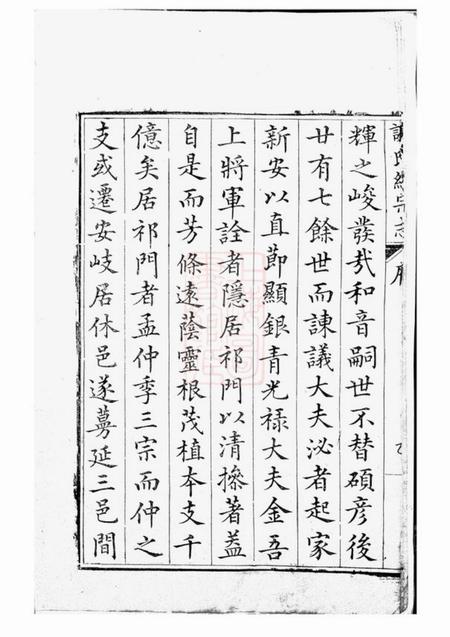 謝氏統宗志
序
輝之峻發我和音嗣世不替碩彦後
廿有七餘世而諫議大夫泌者起家
新安以直節顯銀青光禄大夫金吾
上將軍詮者隱居祁門以清掺著葢
自是而芳條遠蔭靈根茂植本支千
億矣居祁門者孟仲季三宗而仲之
支或遷安岐居休邑遂蔓延三邑間